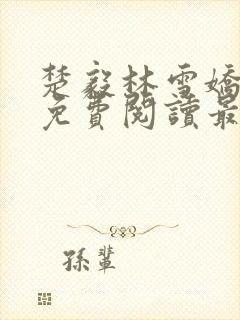 楚毅林雪嬌
免費閱讀最
孫輩